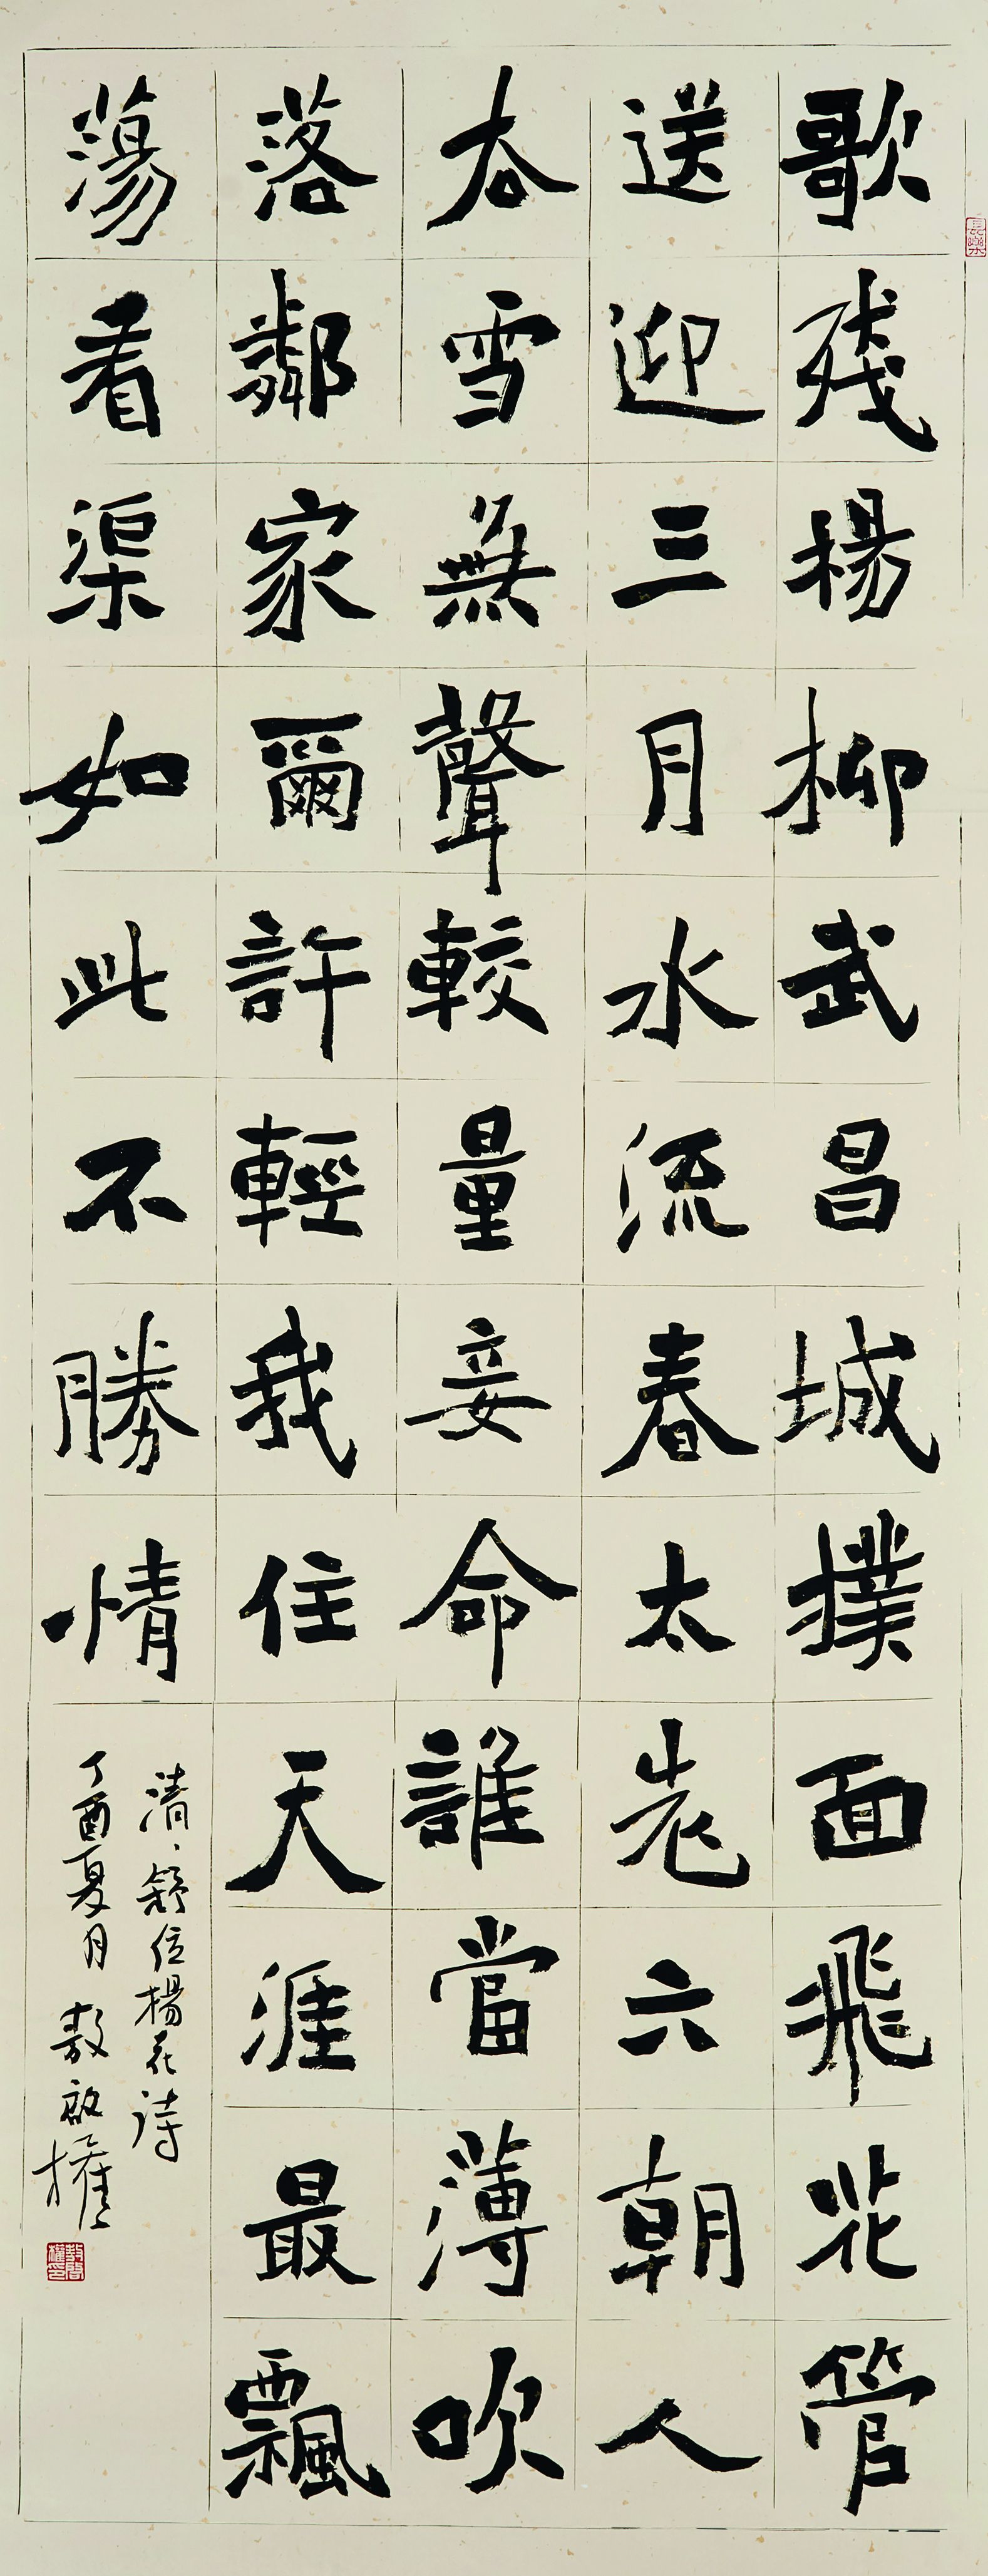 歌殘楊柳武昌城撲面飛花管
送迎三月水流春太老六朝人
去雪無聲較量妾命誰當薄吹
落鄰家爾許輕我住天涯最飄
蕩看渠如此不勝情
清、舒位楊花詩
丁酉夏月 敖啟權
長樂